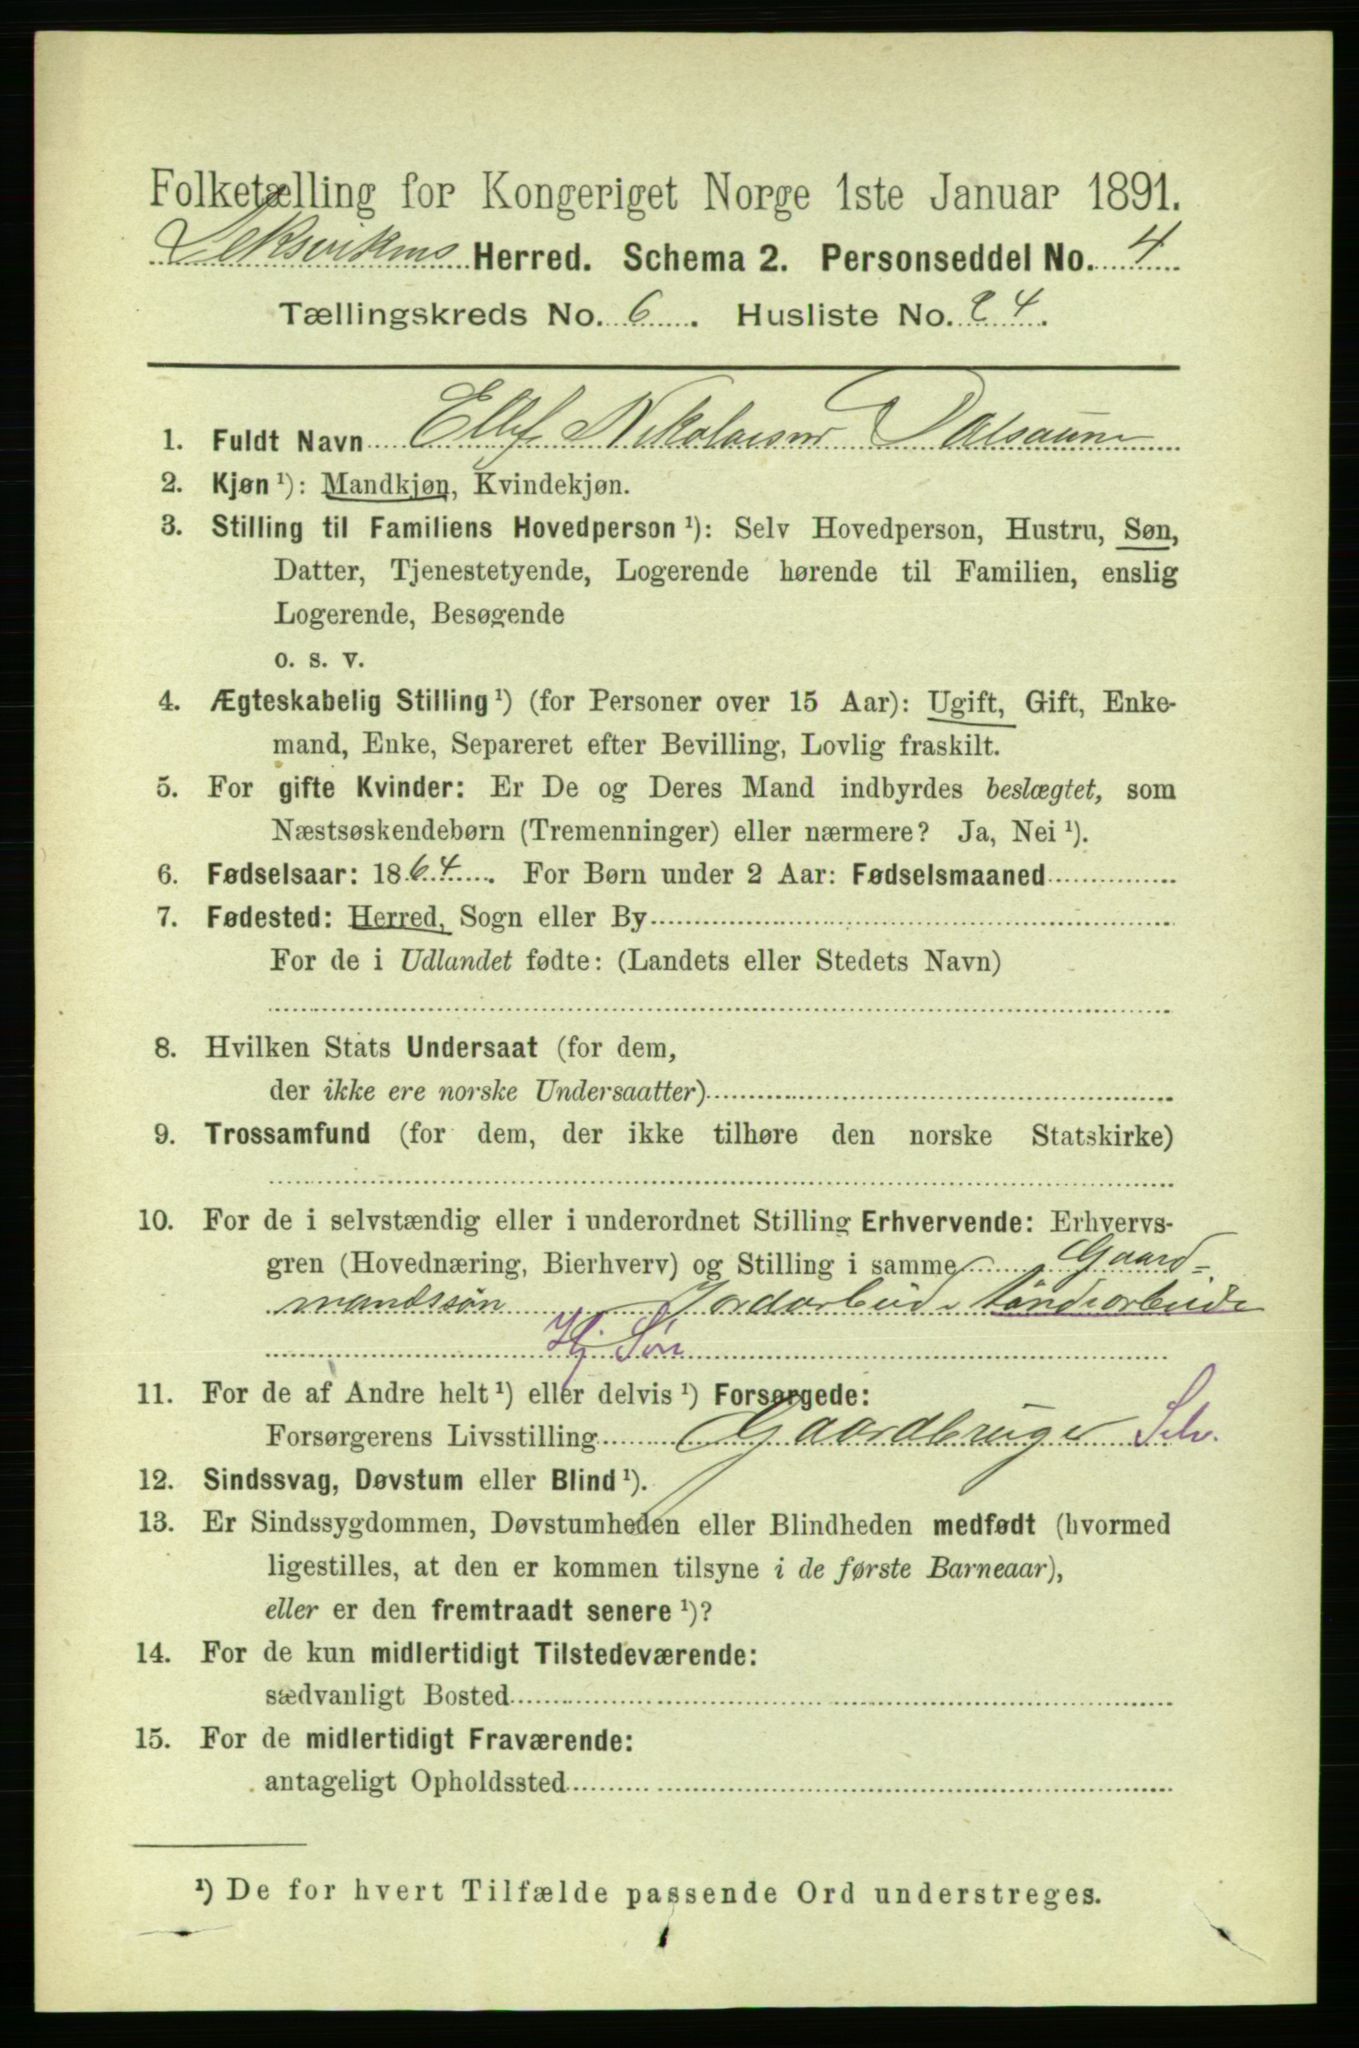 Folketælling for Kongeriget Norge 1ste Januar 1891.
Leksvikens Herred. Schema 2. Personseddel No. 4
Tællingskreds No. 6. Husliste No. 24.
1. Fuldt Navn Ellef Nikolaisen Dalsaune
2. Kjøn ¹): Mandkjøn, Kvindekjøn.
3. Stilling til Familiens Hovedperson ¹): Selv Hovedperson, Hustru, Søn,
Datter, Tjenestetyende, Logerende hørende til Familien, enslig
Logerende, Besøgende
o. s. v.
4. Ægteskabelig Stilling ¹) (for Personer over 15 Aar): Ugift, Gift, Enke-
mand, Enke, Separeret efter Bevilling, Lovlig fraskilt.
5. For gifte Kvinder: Er De og Deres Mand indbyrdes beslægtet, som
Næstsøskendebørn (Tremenninger) eller nærmere? Ja, Nei ¹).
6. Fødselsaar: 1864. For Børn under 2 Aar: Fødselsmaaned
7. Fødested: Herred, Sogn eller By
For de i Udlandet fødte: (Landets eller Stedets Navn)
8. Hvilken Stats Undersaat (for dem,
der ikke ere norske Undersaatter)
9. Trossamfund (for dem, der ikke tilhøre den norske Statskirke)
10. For de i selvstændig eller i underordnet Stilling Erhvervende: Erhvervs-
gren (Hovednæring, Bierhverv) og Stilling i samme Gaard-
mandssøn Jordarbeide
Hj Søn
11. For de af Andre helt ¹) eller delvis ¹) Forsørgede:
Forsørgerens Livsstilling Gaardbruger Selv.
12. Sindssvag, Døvstum eller Blind ¹).
13. Er Sindssygdommen, Døvstumheden eller Blindheden medfødt (hvormed
ligestilles, at den er kommen tilsyne i de første Barneaar),
eller er den fremtraadt senere ¹)?
14. For de kun midlertidigt Tilstedeværende:
sædvanligt Bosted
15. For de midlertidigt Fraværende:
antageligt Opholdssted
¹) De for hvert Tilfælde passende Ord understreges.